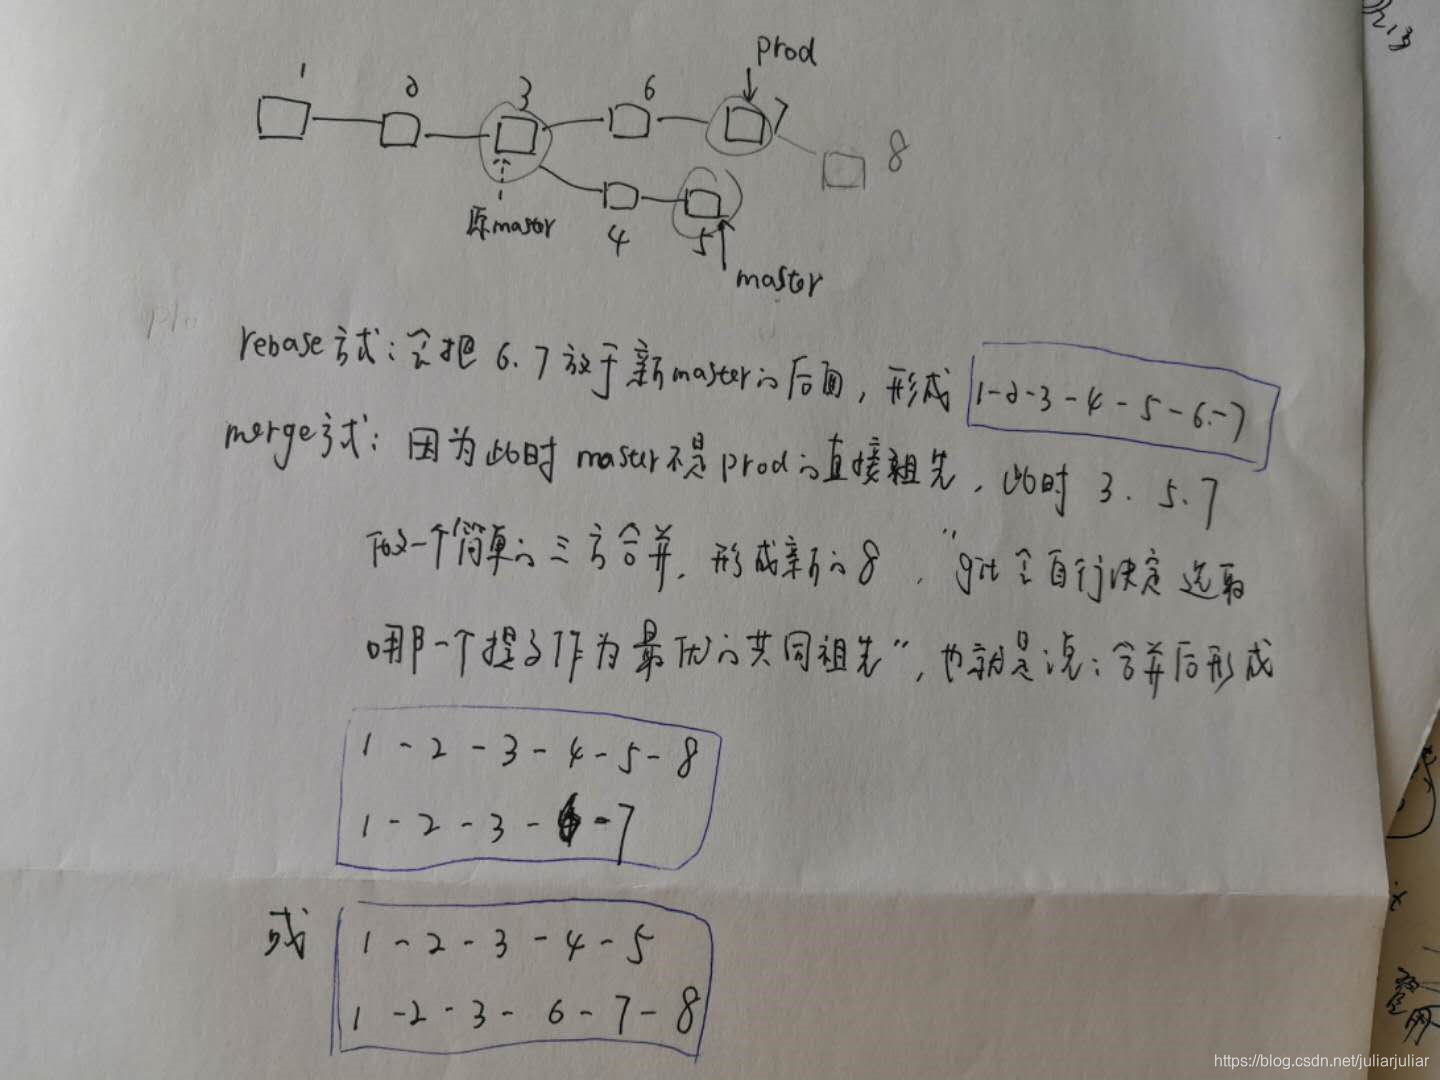 prod
1 2 3 6 7
8
原master
4 5
master
rebase方式：会把 6.7 放于新master的后面，形成 1-2-3-4-5-6-7
merge方式：因为此时 master不是prod的直接祖先，此时 3. 5. 7
做一个简单的三方合并，形成新的8，“git会自行决定选取
哪一个提交作为最优的共同祖先”，也就是说：合并后形成
1 - 2 - 3 - 4 - 5 - 8
1 - 2 - 3 - 6 - 7
或
1 - 2 - 3 - 4 - 5
1 - 2 - 3 - 6 - 7 - 8
https://blog.csdn.net/juliarjuliar